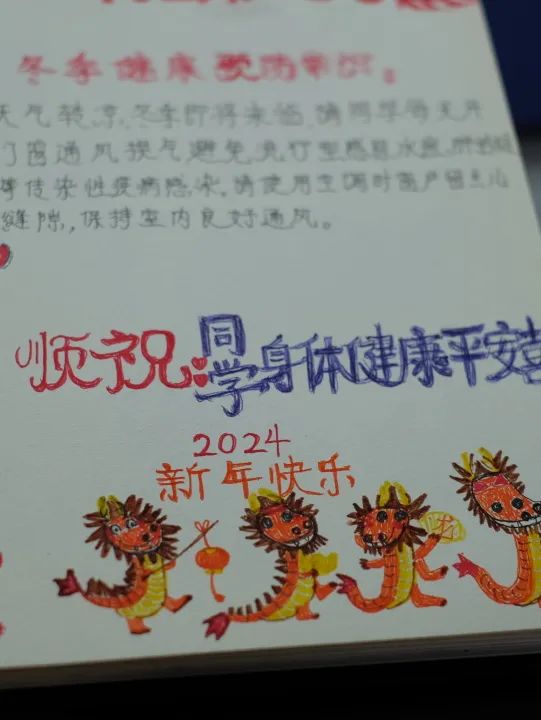 冬季健康预防常识。
天气转凉,冬季即将来临,请同学每天开
门窗通风换气避免流行型感冒水痘,肺结核
等传染性疫病感染,请使用空调时窗户留点儿
缝隙,保持室内良好通风。
顺祝:同学身体健康平安喜
2024
新年快乐